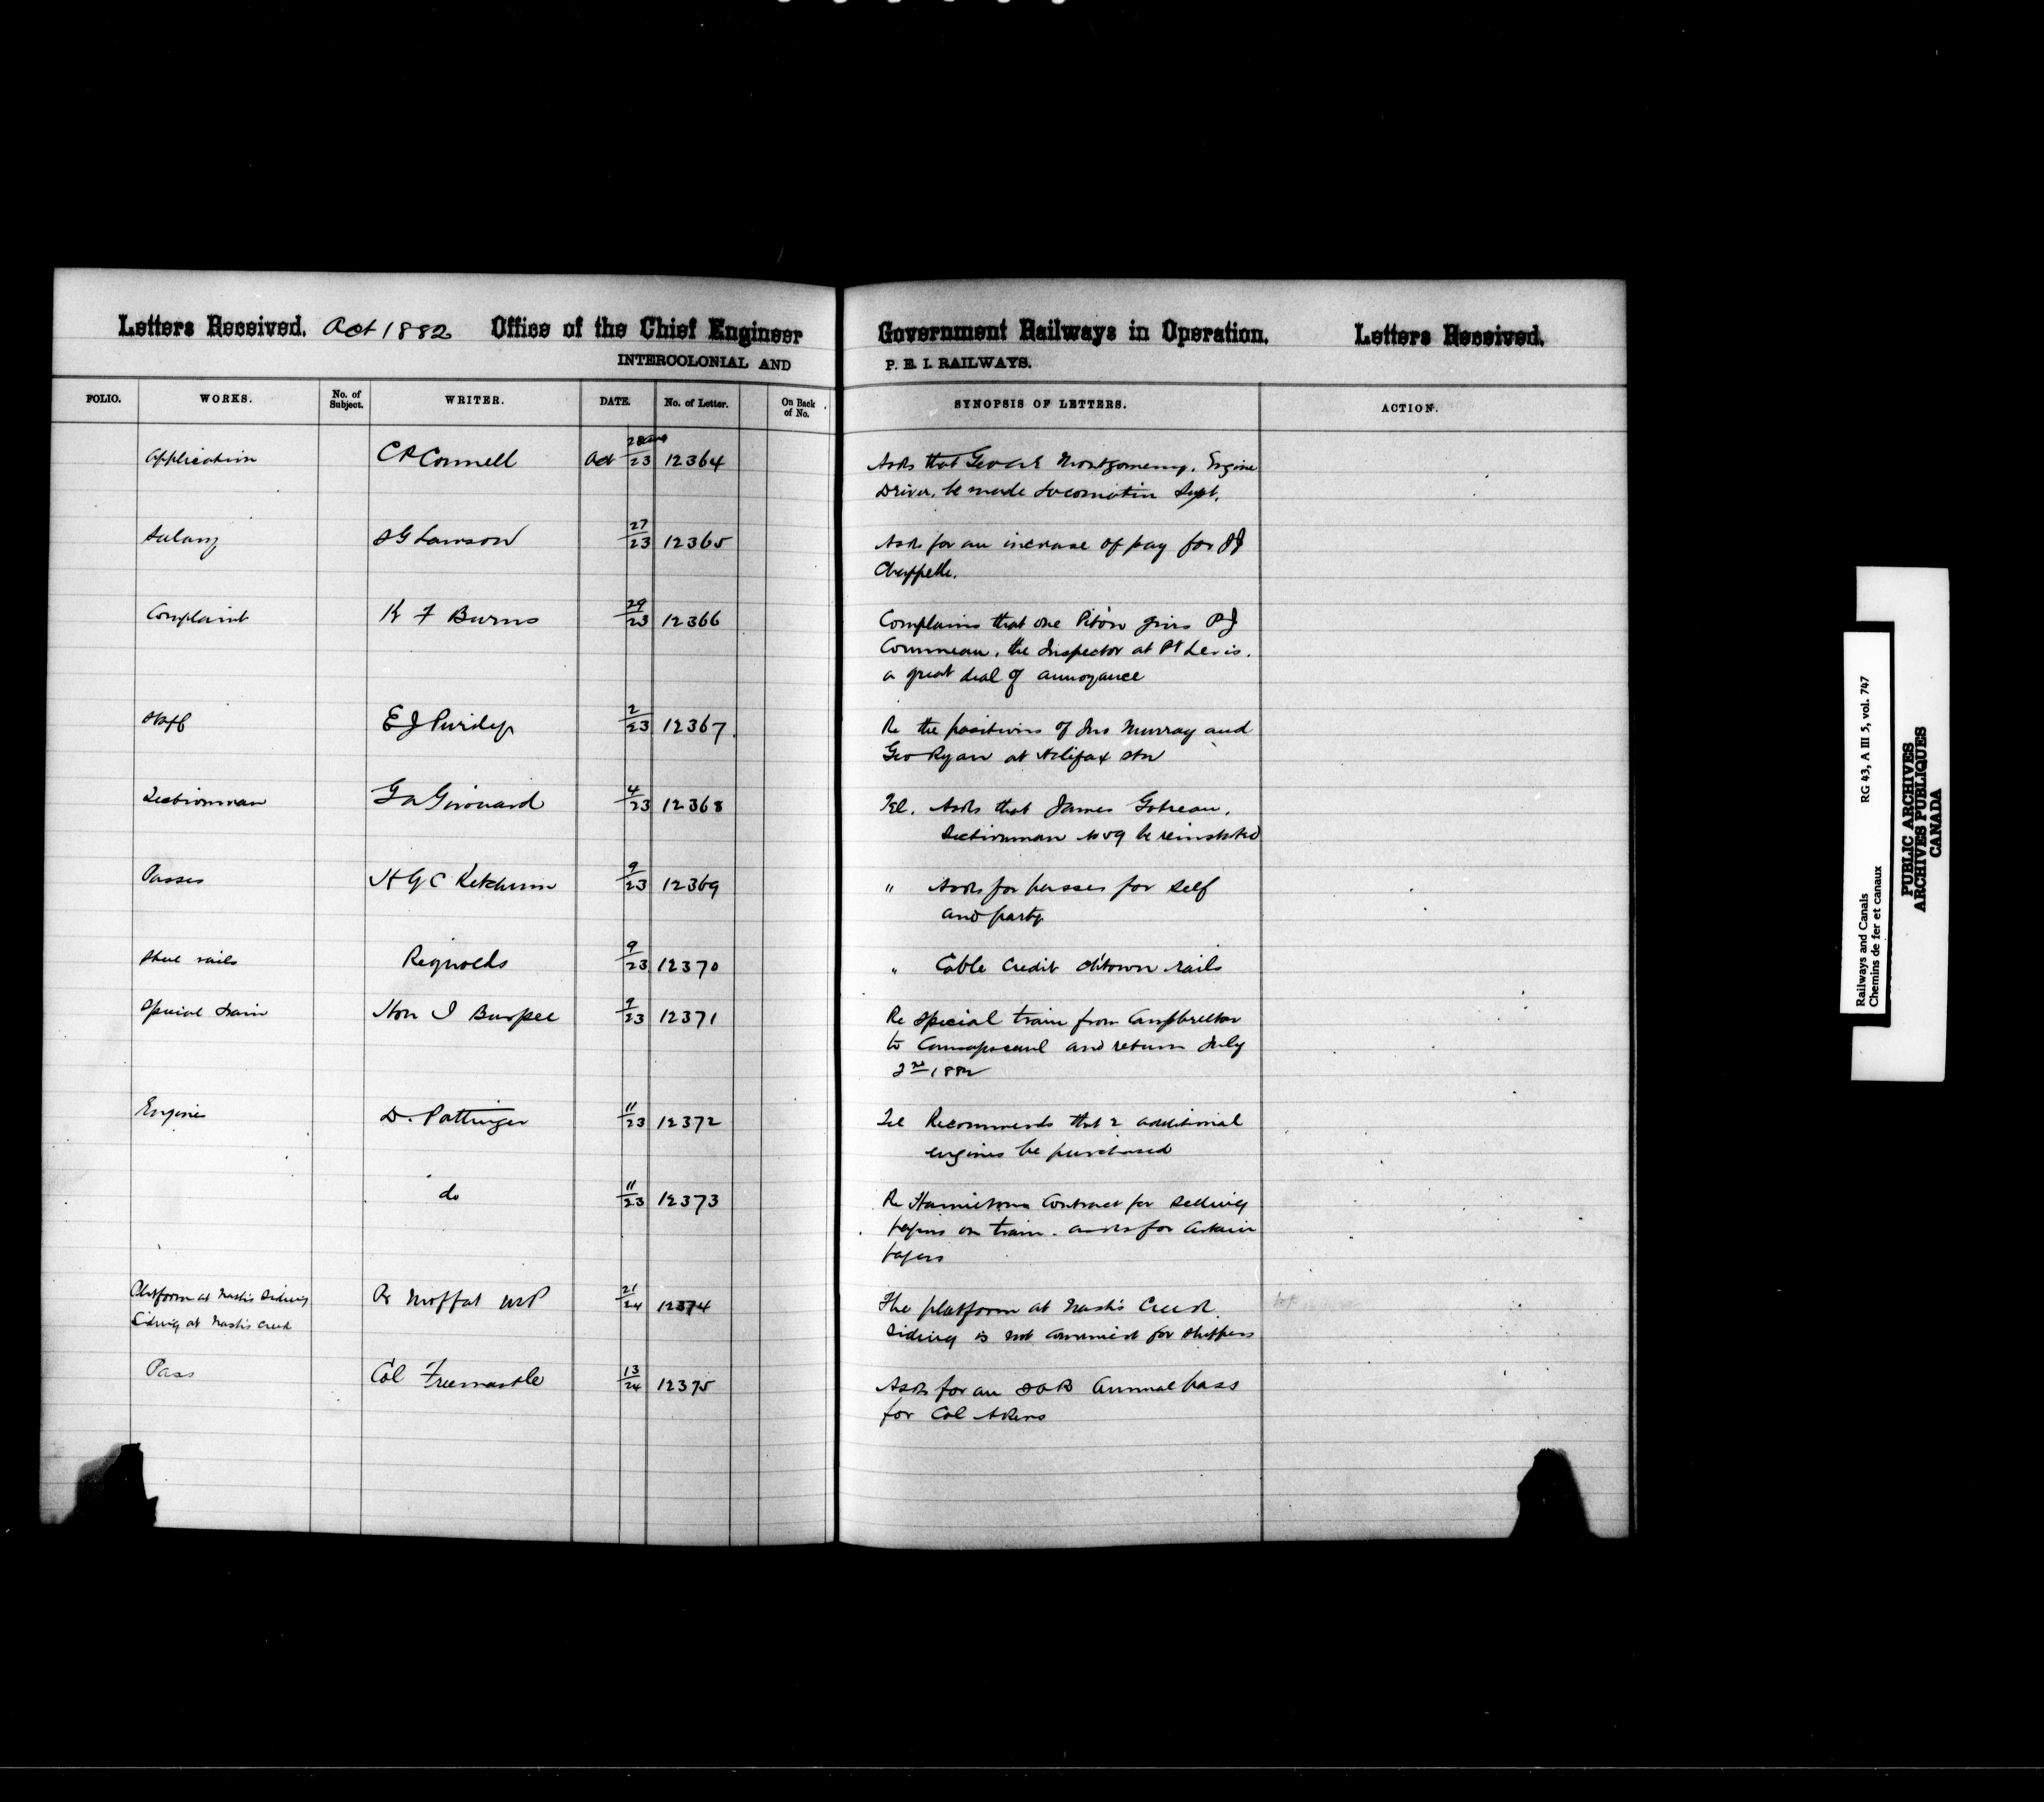 Letters Received. Oct 1882 Office of the Chief Engineer
INTERCOLONIAL AND
Government Railways in Operation. Letters Received.
P. E. I. RAILWAYS.
FOLIO. WORKS. No. of Subject. WRITER. DATE. No. of Letter. On Back of No.
SYNOPSIS OF LETTERS. ACTION.
Application C R Connell Oct 28 Aug/23 12364
Asks that Montgomery, Engine
Driver, be made Locomotive Supt.
Salary Lawson 27/23 12365
Asks for an increase of pay for JJ
Chappelle.
Complaint K F Burns 29/23 12366
Complains that one Piton gives P J
Commeau, the Inspector at Pt Levis,
a great deal of annoyance
Staff E J Purdy 2/23 12367
Re the positions of Jno Murray and
Geo Ryan at Halifax Stn
Sectionman G A Girouard 4/23 12368
Tel. Asks that James Gotreau,
Sectionman No 59 be reinstated
Passes H G C Ketchum 9/23 12369
" Asks for passes for self
and party
Steel rails Reynolds 9/23 12370
" Cable Credit Ch'town rails
Special train Hon I Burpee 9/23 12371
Re special train from Campbellton
to Causapscaul and return July
2nd 1882
Engines D. Pottinger 11/23 12372
Tel Recommends that 2 additional
engines be purchased
do 11/23 12373
Re Hamiltons Contract for selling
papers on train. asks for certain
papers
Platform at Nash's Siding
Siding at Nash's Creek
R Moffat MP 21/24 12374
The platform at Nash's Creek
Siding is not convenient for shippers
Pass Col Freemantle 13/24 12375
Asks for an annual pass
for Col Akers
Railways and Canals RG 43, A III 5, vol. 747
Chemins de fer et canaux
PUBLIC ARCHIVES
ARCHIVES PUBLIQUES
CANADA